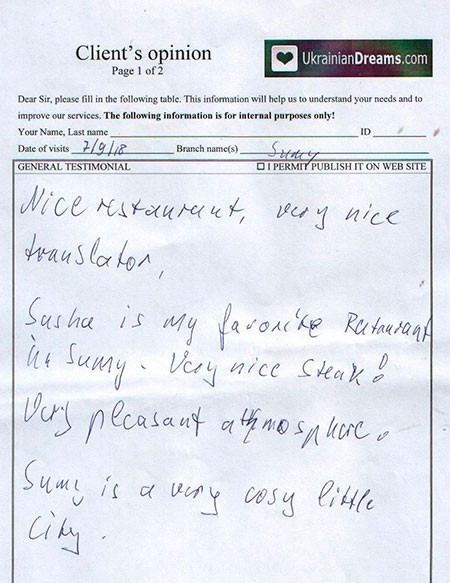 Client's opinion
Page 1 of 2
UkrainianDreams.com
Dear Sir, please fill in the following table. This information will help us to understand your needs and to
improve our services. The following information is for internal purposes only!
Your Name, Last name ID
Date of visits 7/9/18 Branch name(s) Sumy
GENERAL TESTIMONIAL ☐ I PERMIT PUBLISH IT ON WEB SITE
Nice restaurant, very nice
translator,
Sasha is my favorite Retaurant
in Sumy. Very nice Steak!
Very pleasant athmosphere.
Sumy is a very cosy little
City.